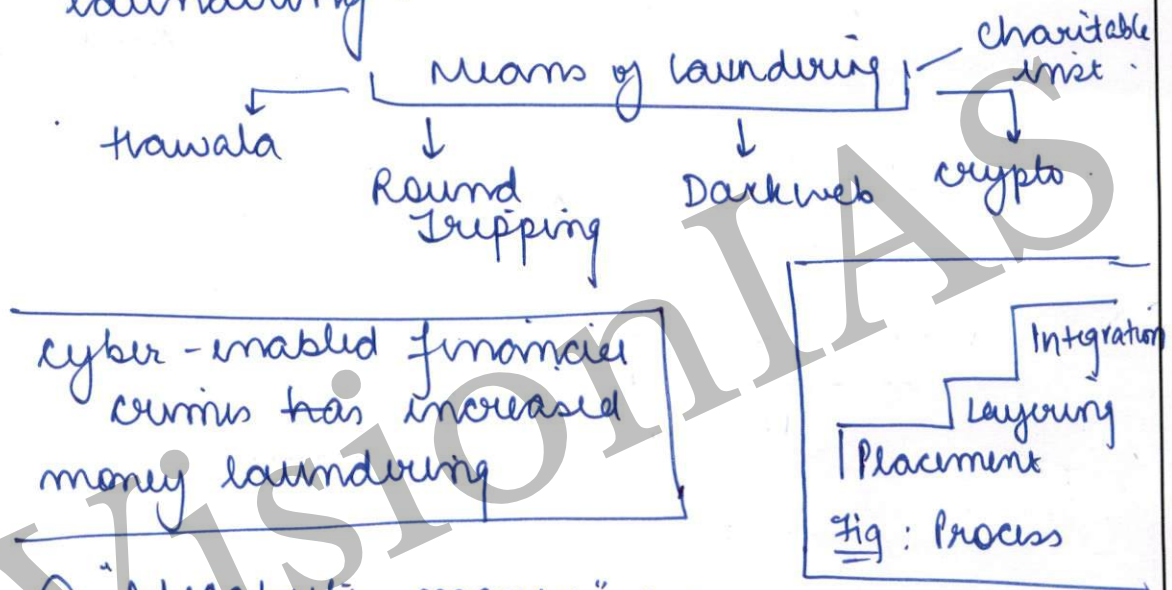 laundering
Means of laundering
Charitable
inst.
Hawala
Round
Tripping
Darkweb
crypto
cyber-enabled financial
crimes has increased
money laundering
Integration
Layering
Placement
Fig : Process
VisionIAS